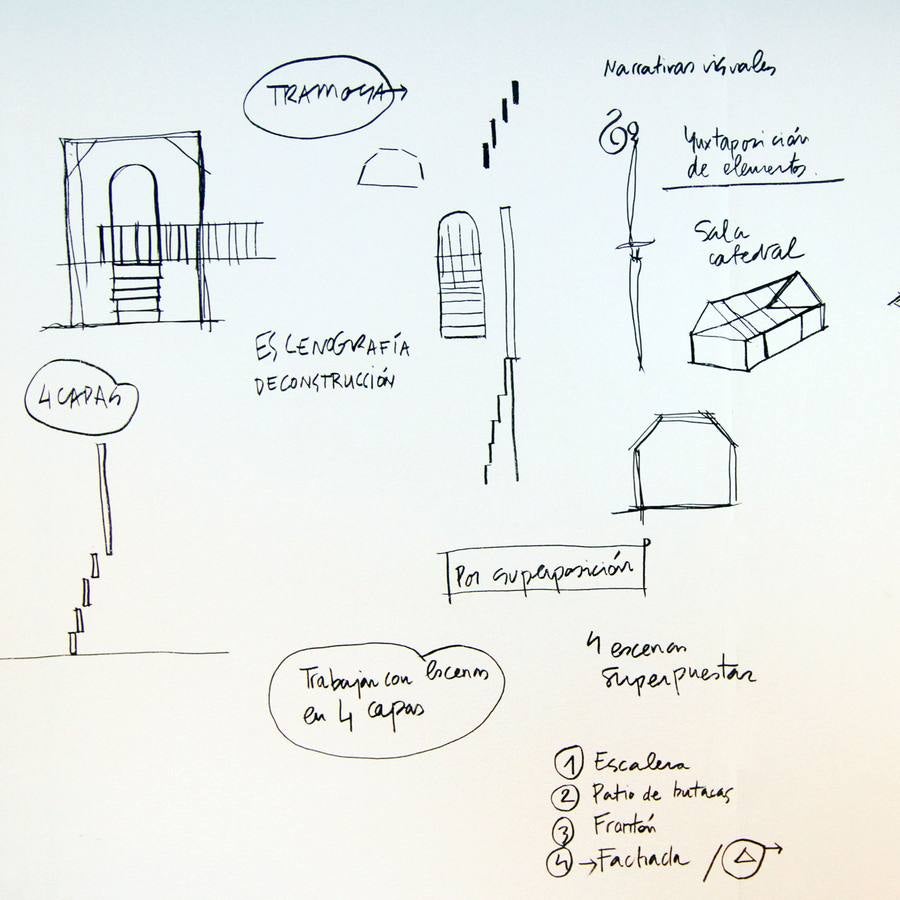 TRAMOYA
Narrativas visuales
Yuxtaposición
de elementos.
Sala
catedral
ESCENOGRAFÍA
DECONSTRUCCIÓN
4 CAPAS
Por superposición
Trabajar con escenas
en 4 capas
4 escenas
superpuestas
1 Escalera
2 Patio de butacas
3 Frontón
4 → Fachada /